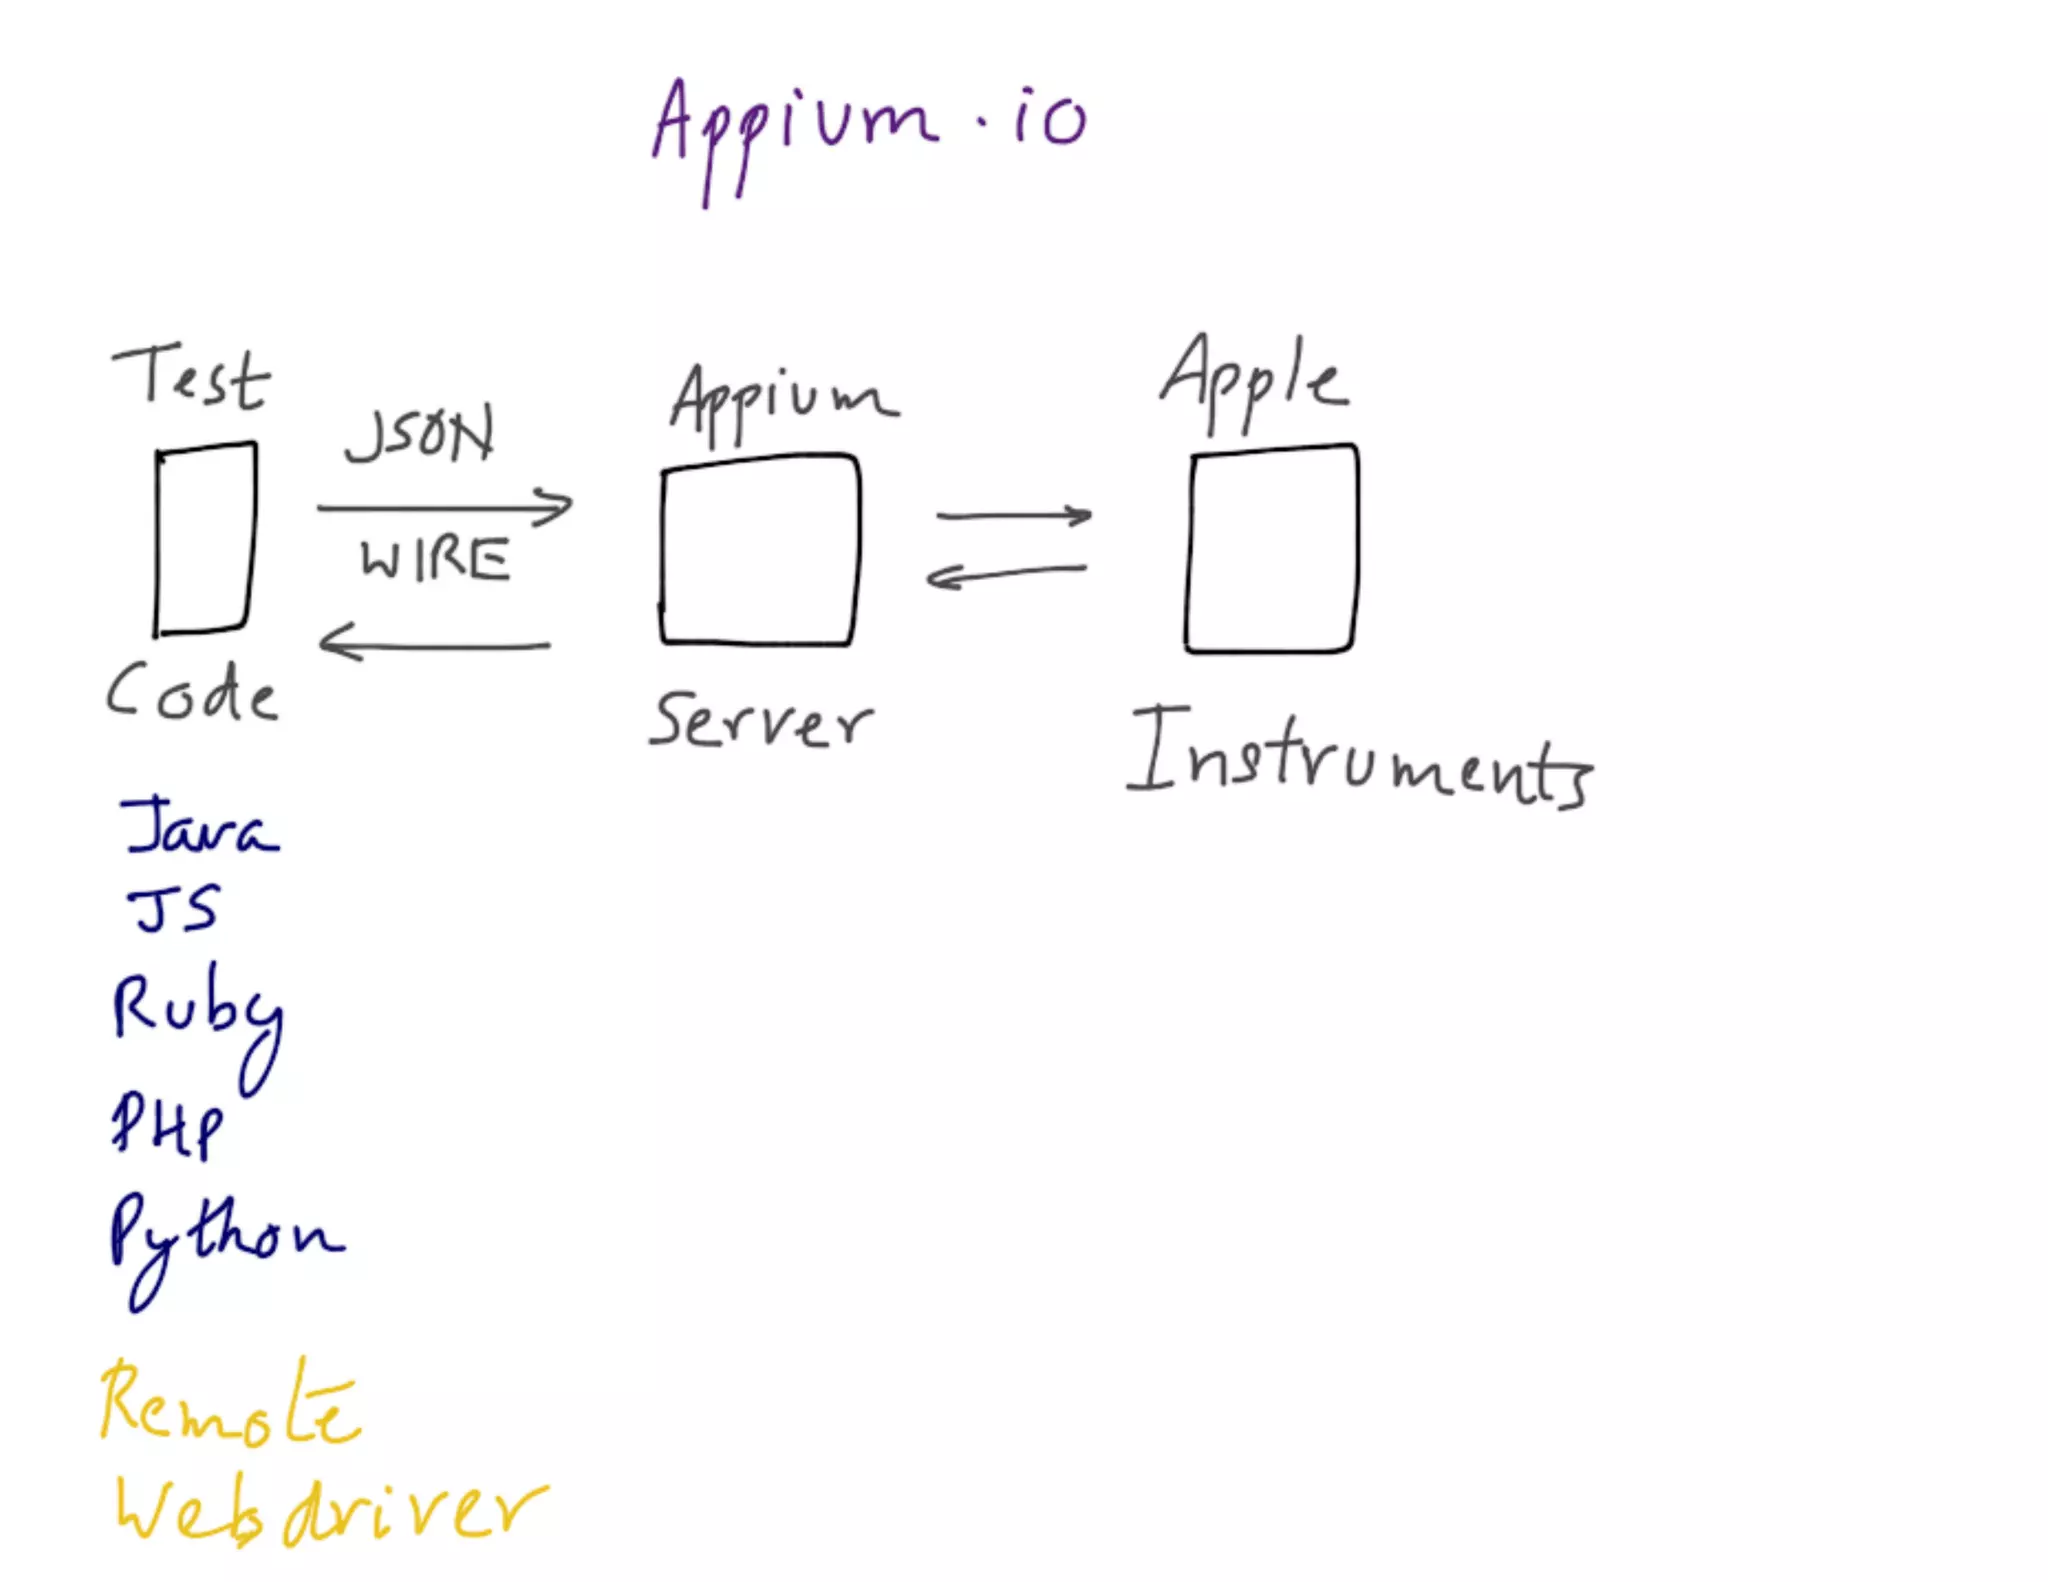 Appium.io
Test
Code
JSON
WIRE
Appium
Server
Apple
Instruments
Java
JS
Ruby
PHP
Python
Remote
Webdriver